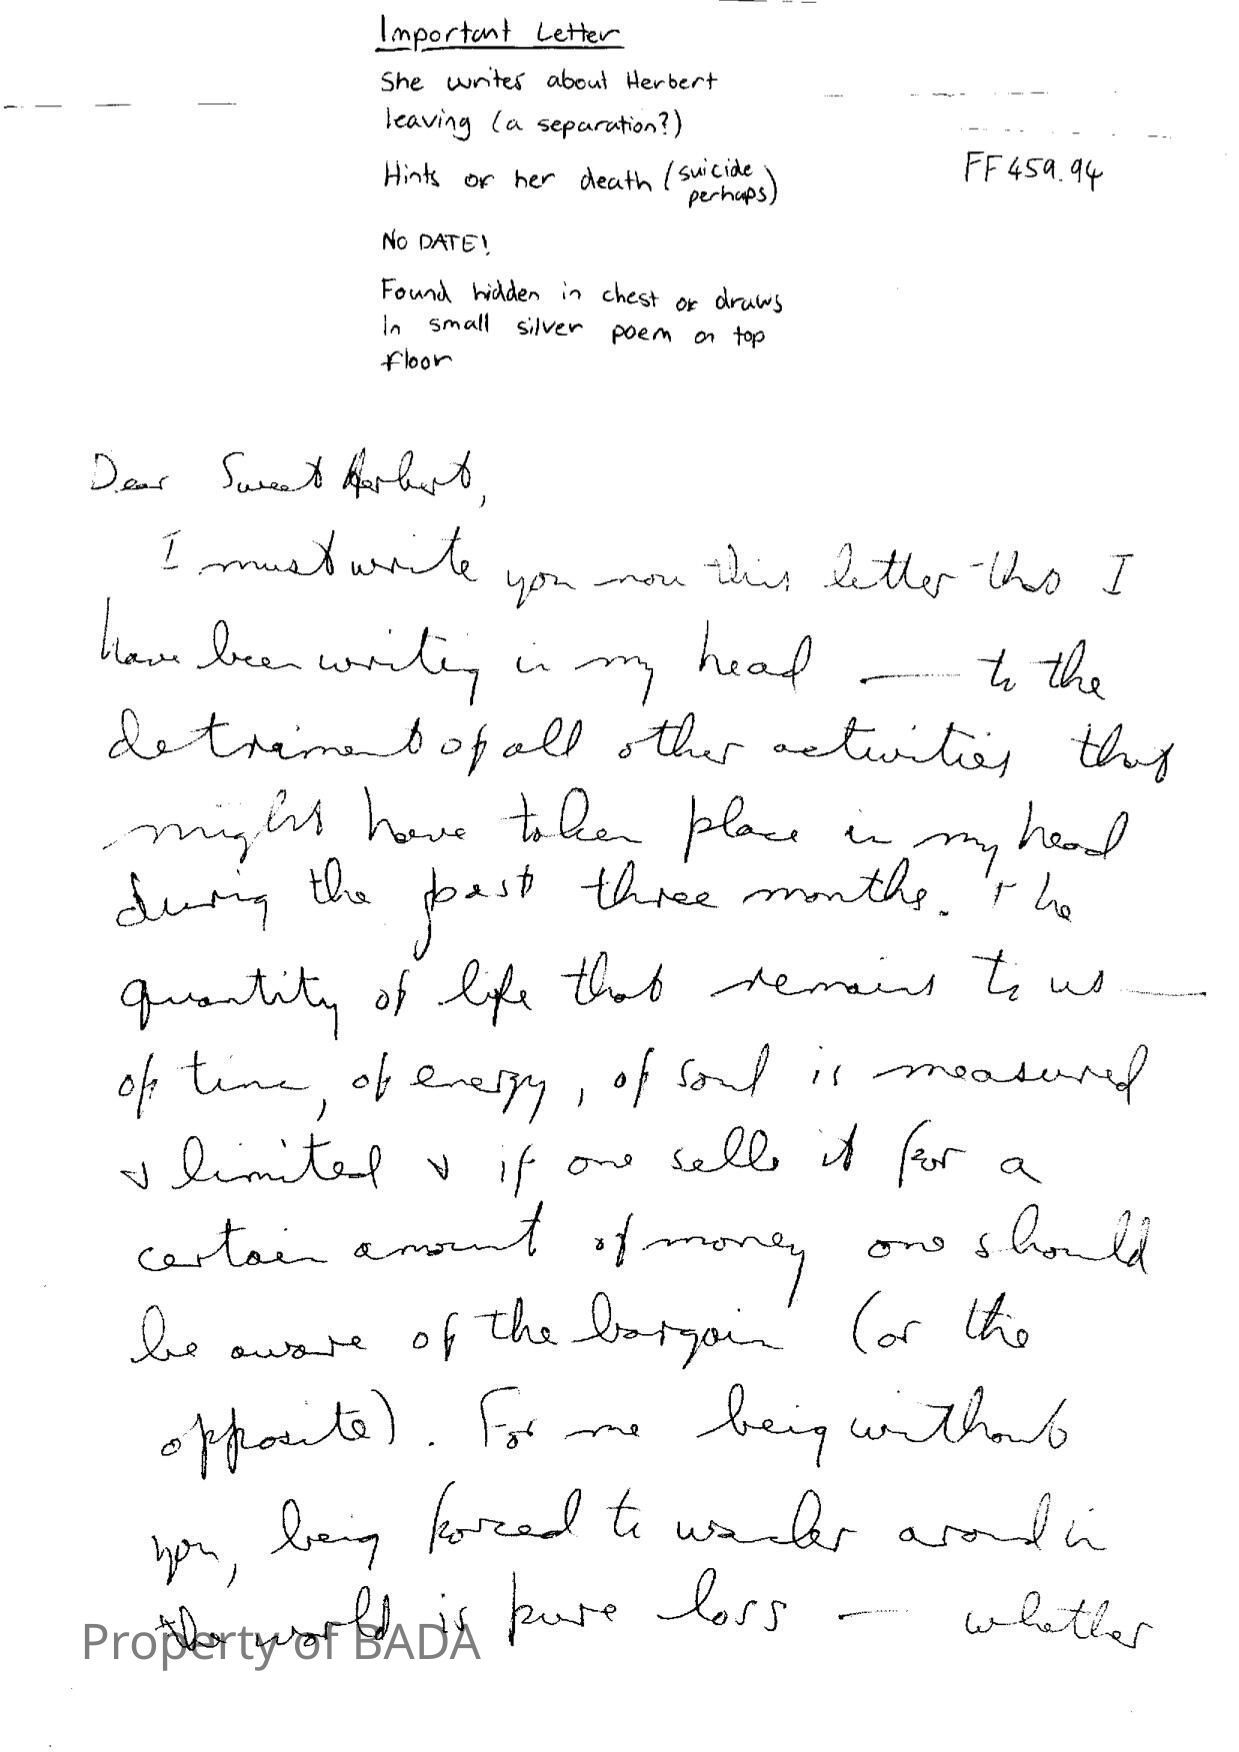 Important Letter
She writes about Herbert
leaving (a separation?)
Hints of her death (suicide
perhaps)
FF459.94
NO DATE!
Found hidden in chest of draws
In small silver poem on top
floor
Dear Sweet Herbert,
I must write you now this letter that I
have been writing in my head — to the
detriment of all other activities that
might have taken place in my head
during the past three months. The
quantity of life that remains to us —
of time, of energy, of soul is measured
& limited & if one sells it for a
certain amount of money one should
be aware of the bargain (or the
opposite). For me being without
you, being forced to wander around in
the world is pure loss — whether
Property of BADA